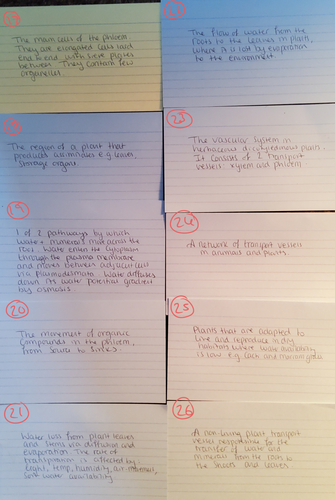 17
The main cells of the phloem.
They are elongated cells laid
end to end with sieve plates
between. They contain few
organelles.
18
The region of a plant that
produces assimilates e.g leaves,
storage organs.
19
1 of 2 pathways by which
water + minerals move across the
root. Water enters the cytoplasm
through the plasma membrane
and moves between adjacent cells
via plasmodesmata. Water diffuses
down its water potential gradient
by osmosis.
20
The movement of organic
compounds in the phloem,
from source to sinks.
21
Water loss from plant leaves
and stems via diffusion and
evaporation. The rate of
transpiration is affected by:
light, temp, humidity, air movement,
soil water availability
The flow of water from the
roots to the leaves in plants,
where it is lost by evaporation
to the environment.
23
The vascular system in
herbaceous dicotyledonous plants.
It consists of 2 transport
vessels: xylem and phloem
24
A network of transport vessels
in animals and plants.
25
Plants that are adapted to
live and reproduce in dry
habitats where water availability
is low e.g. cacti and marram grass
26
A non-living plant transport
vessel responsible for the
transfer of water and
minerals from the roots to
the shoots and leaves